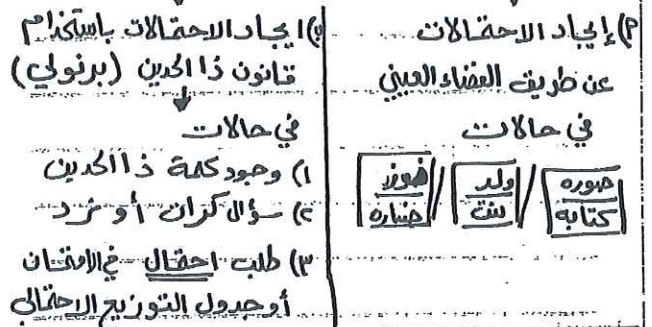 م) إيجاد الاحتمالات
عن طريق الفضاء العيني
في حالات
صوره / ولد / فوز
كتابة / بنت / خساره
ب) ايجاد الاحتمالات باستخدام
قانون ذا الحدين (برنولي)
في حالات
١) وجود كلمة ذا الحدين
٢) سؤال كرات أو نرد
٣) طلب احتمال في الامتحان
أو جدول التوزيع الاحتمالي